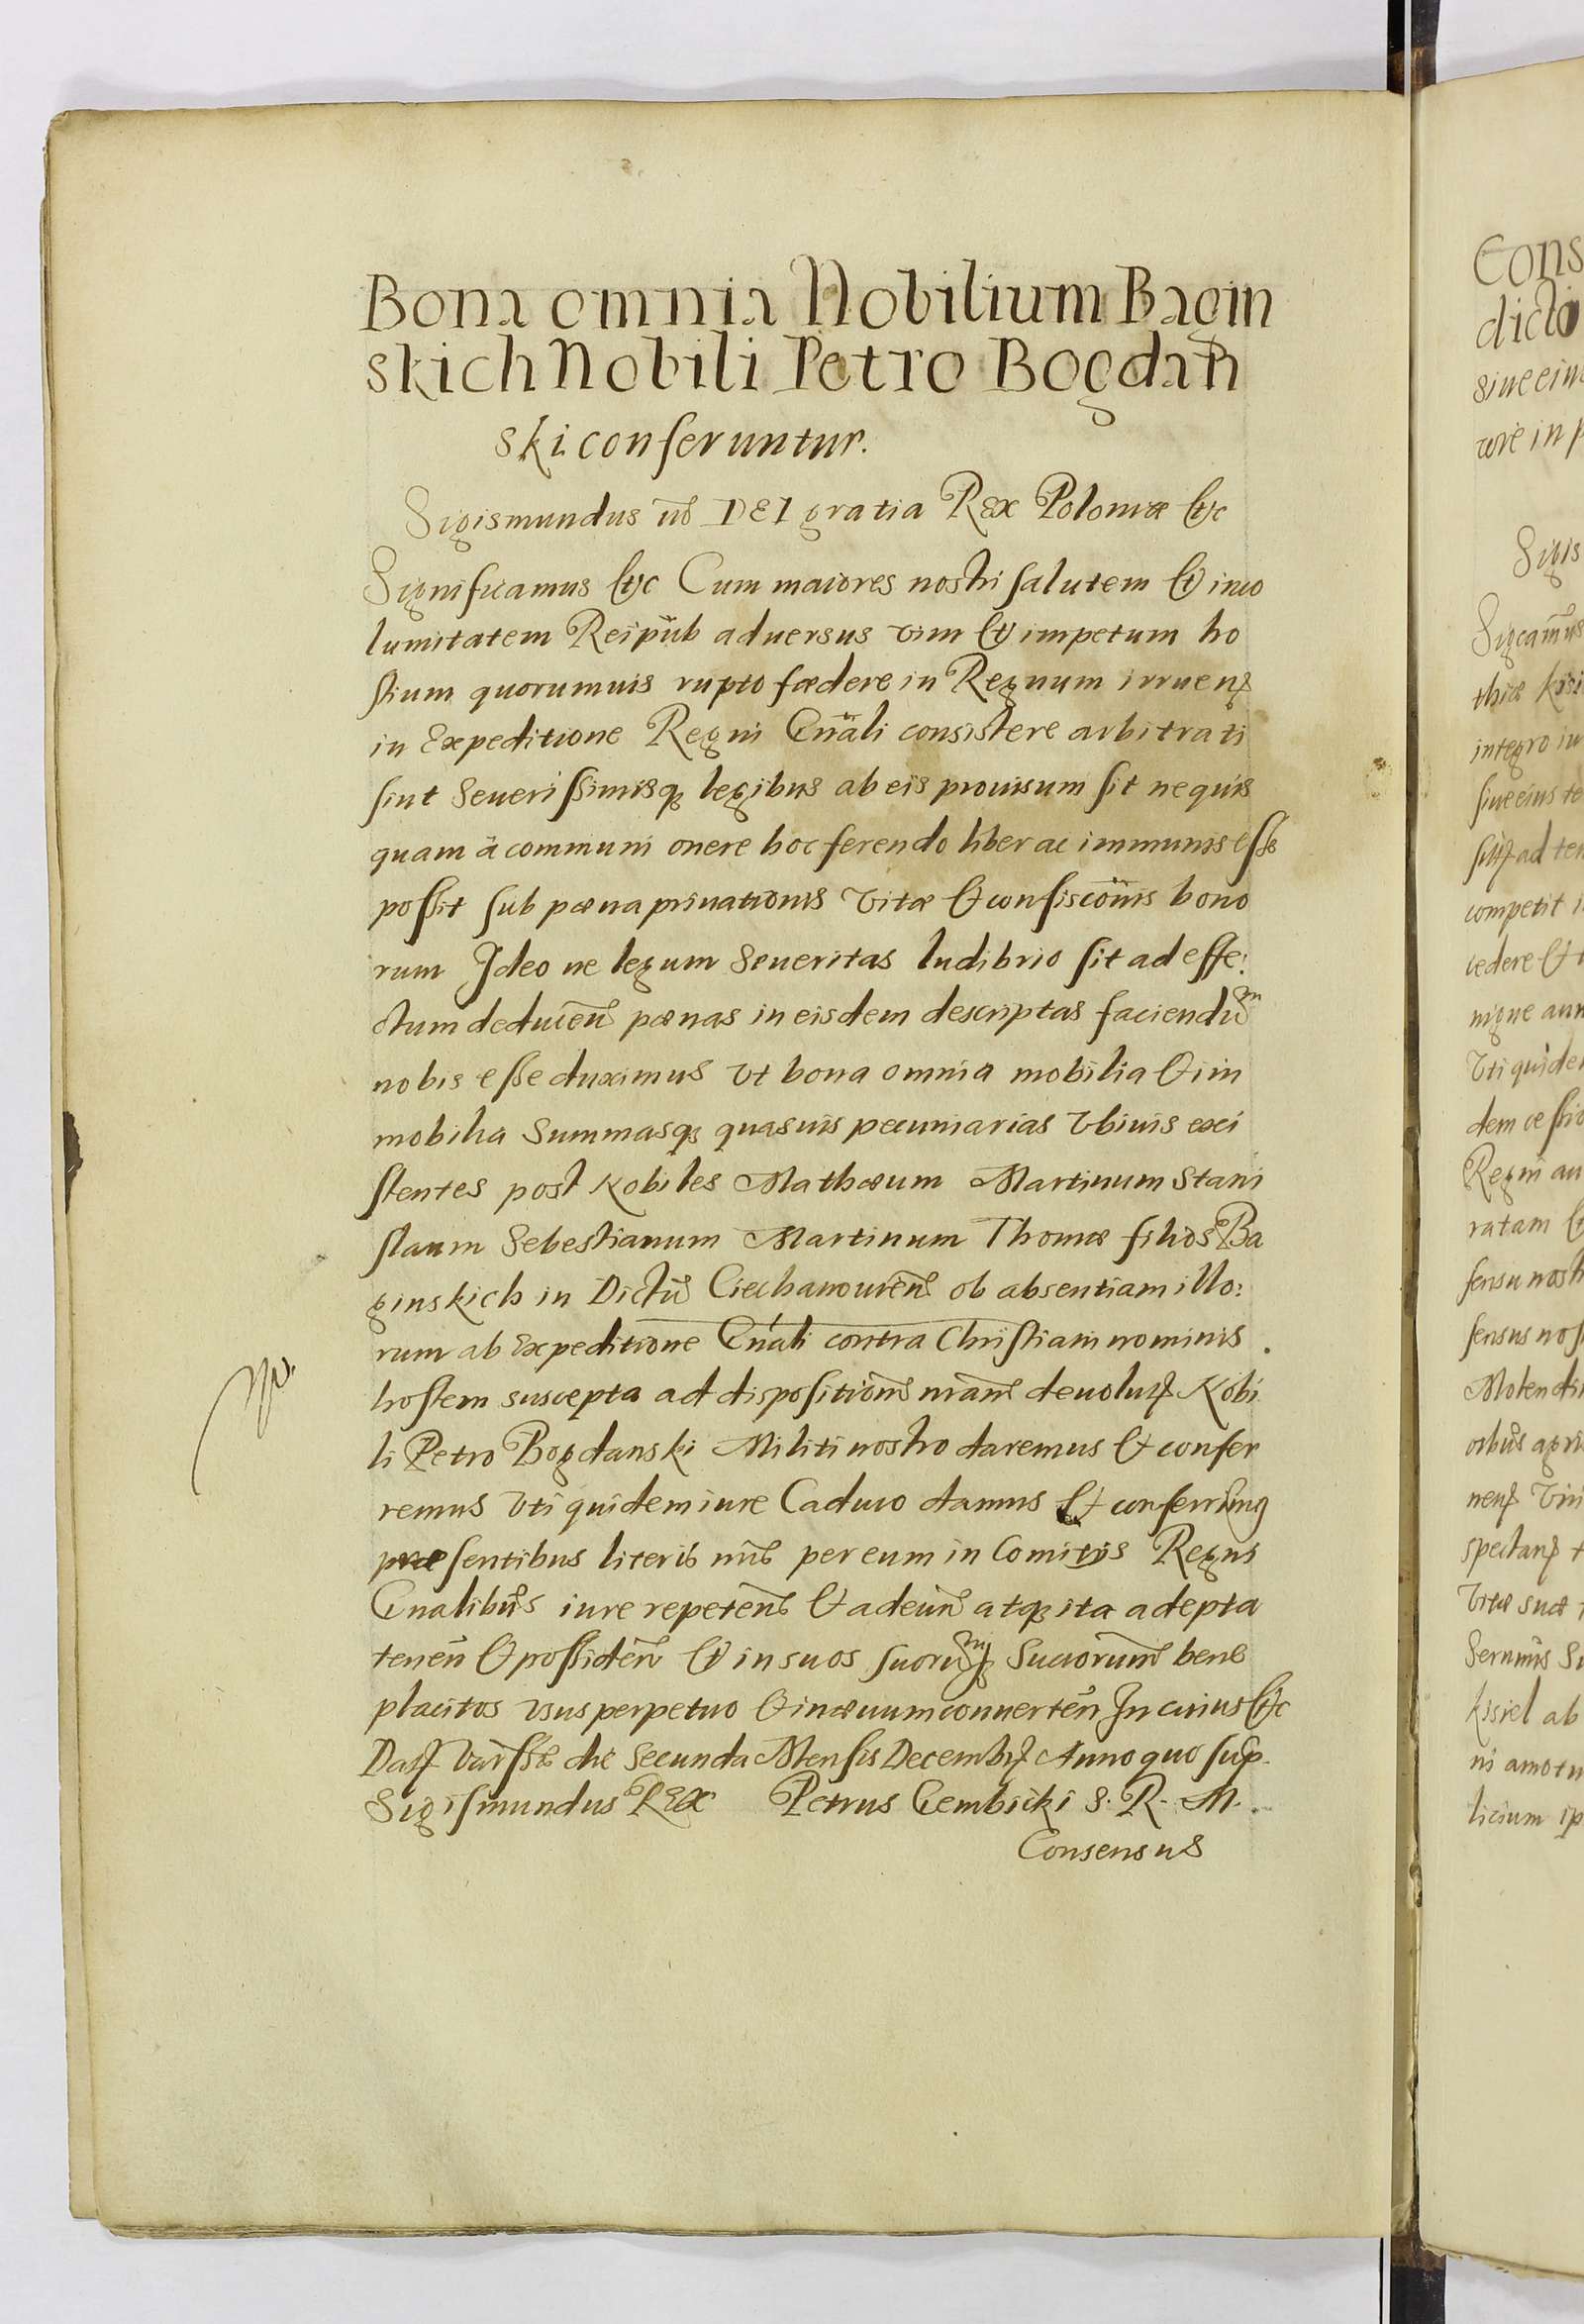 Bona omnia Nobilium Bagin
skich Nobili Petro Bogdan
ski conferuntur.
Sigismundus iii DEI gratia Rex Poloniæ &c
Significamus &c Cum maiores nostri salutem & inco
lumitatem Reipub aduersus vim & impetum ho
stium quorumuis rupto fœdere in Regnum irruen
in Expeditione Regni Gnali consistere arbitrati
sint Seuerissimisq legibus ab eis prouisum sit ne quis
quam à communi onere hoc ferendo liber ac immunis esse
possit sub pœna priuationis vitæ & confisconis bono
rum Ideo ne legum Seueritas ludibrio sit ad effe:
ctum deducen pœnas in eisdem descriptas faciendum
nobis esse duximus vt bona omnia mobilia & im
mobilia Summasq quasuis pecuniarias vbiuis exi
stentes post Nobiles Mathæum Martinum Stani
slaum Sebestianum Martinum Thomæ filios Ba
ginskich in Dictu Ciechanouien ob absentiam illo:
rum ab Expeditione Gnali contra Christiani nominis
hostem suscepta ad disposition nram deuolut Nobi
li Petro Bogdanski Militi nostro daremus & confer
remus vti quidem iure Caduco damus & conferrimq
præsentibus literis nris per eum in Comitijs Regni
Gnalibus iure repeten & adeun atq ita adepta
tenen & possiden & in suos suorumq Succorum bene
placitos vsus perpetuo & in æuum conuerten In cuius &c
Dat Varss die Secunda Mensis Decembr Anno quo sup.
Sigismundus REX Petrus Gembicki S. R. M.
Consensus
Cons
dicto
siue eiu
in p
Sigis
Sigcamus
thiæ Kisi
integro iu
siue eius te
ad ten
competit i
cedere &
nique ann
Vti quide
dem cessio
Regni au
ratam &
sensu nost
sensus nos
Molendi
vitæ suæ
Kisiel ab
ni amotu
licium ip